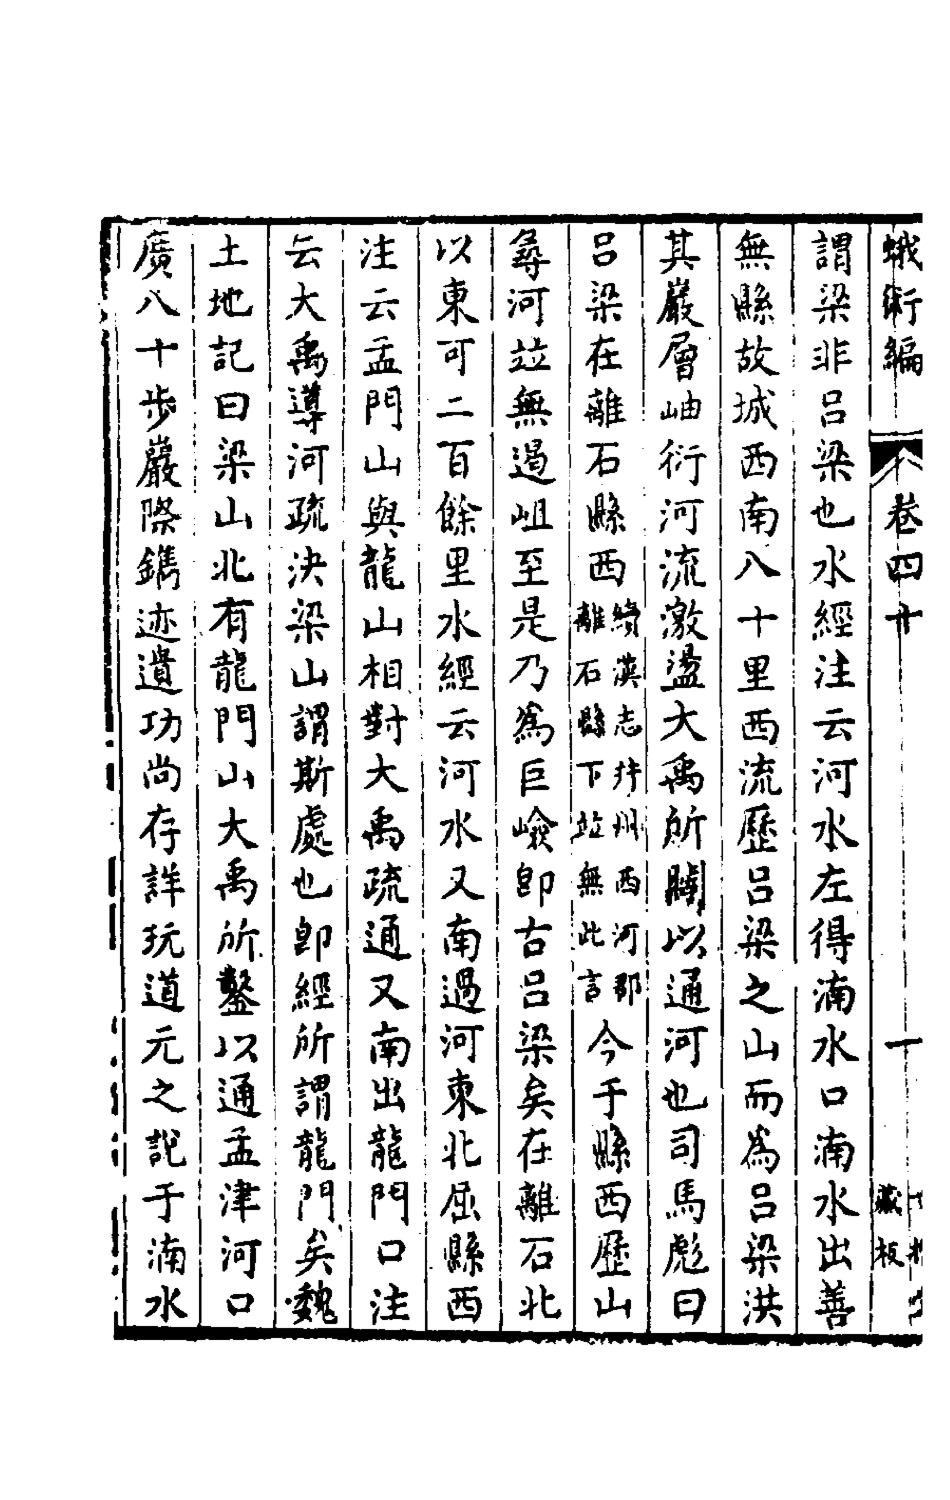 蛾術編
卷四十
一
藏板
謂梁非呂梁也水經注云河水左得湳水口湳水出善
無縣故城西南八十里西流歷呂梁之山而為呂梁洪
其巖層岫衍河流激盪大禹所闢以通河也司馬彪曰
呂梁在離石縣西續漢志并州西河郡離石縣下竝無此言今于縣西歷山
尋河竝無過岨至是乃為巨嶮卽古呂梁矣在離石北
以東可二百餘里水經云河水又南過河東北屈縣西
注云孟門山與龍山相對大禹疏通又南出龍門口注
云大禹導河疏決梁山謂斯處也卽經所謂龍門矣魏
土地記曰梁山北有龍門山大禹所鑿以通孟津河口
廣八十步巖際鐫迹遺功尚存詳玩道元之說于湳水